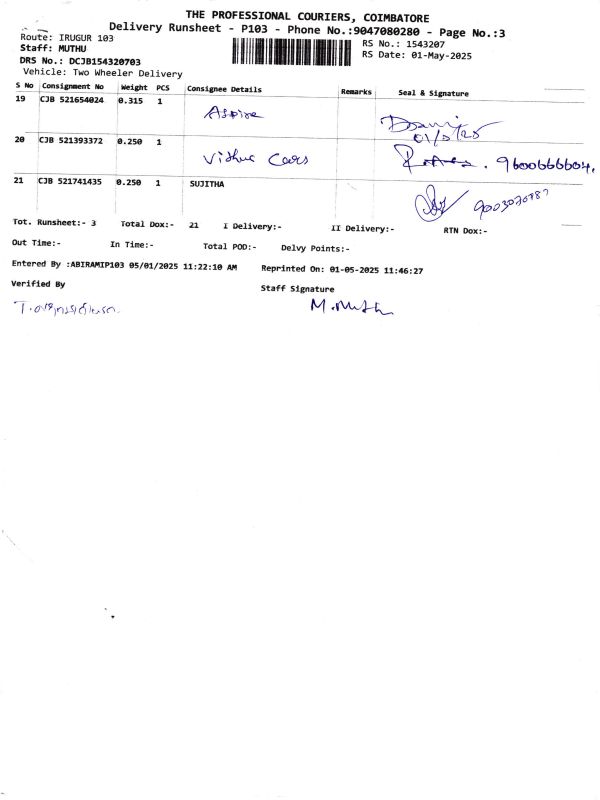 THE PROFESSIONAL COURIERS, COIMBATORE
Delivery Runsheet - P103 - Phone No.:9047080280 - Page No.:3
Route: IRUGUR 103
Staff: MUTHU
DRS No.: DCJB154320703
Vehicle: Two Wheeler Delivery
RS No.: 1543207
RS Date: 01-May-2025
S No Consignment No Weight PCS Consignee Details Remarks Seal & Signature
19 CJB 521654024 0.315 1 Aspire
01/5/25
20 CJB 521393372 0.250 1 Vishnu Cars 9600666604.
21 CJB 521741435 0.250 1 SUJITHA
Tot. Runsheet:- 3 Total Dox:- 21 I Delivery:- II Delivery:- RTN Dox:-
Out Time:- In Time:- Total POD:- Delvy Points:-
Entered By :ABIRAMIP103 05/01/2025 11:22:10 AM Reprinted On: 01-05-2025 11:46:27
Verified By Staff Signature
M.Muth